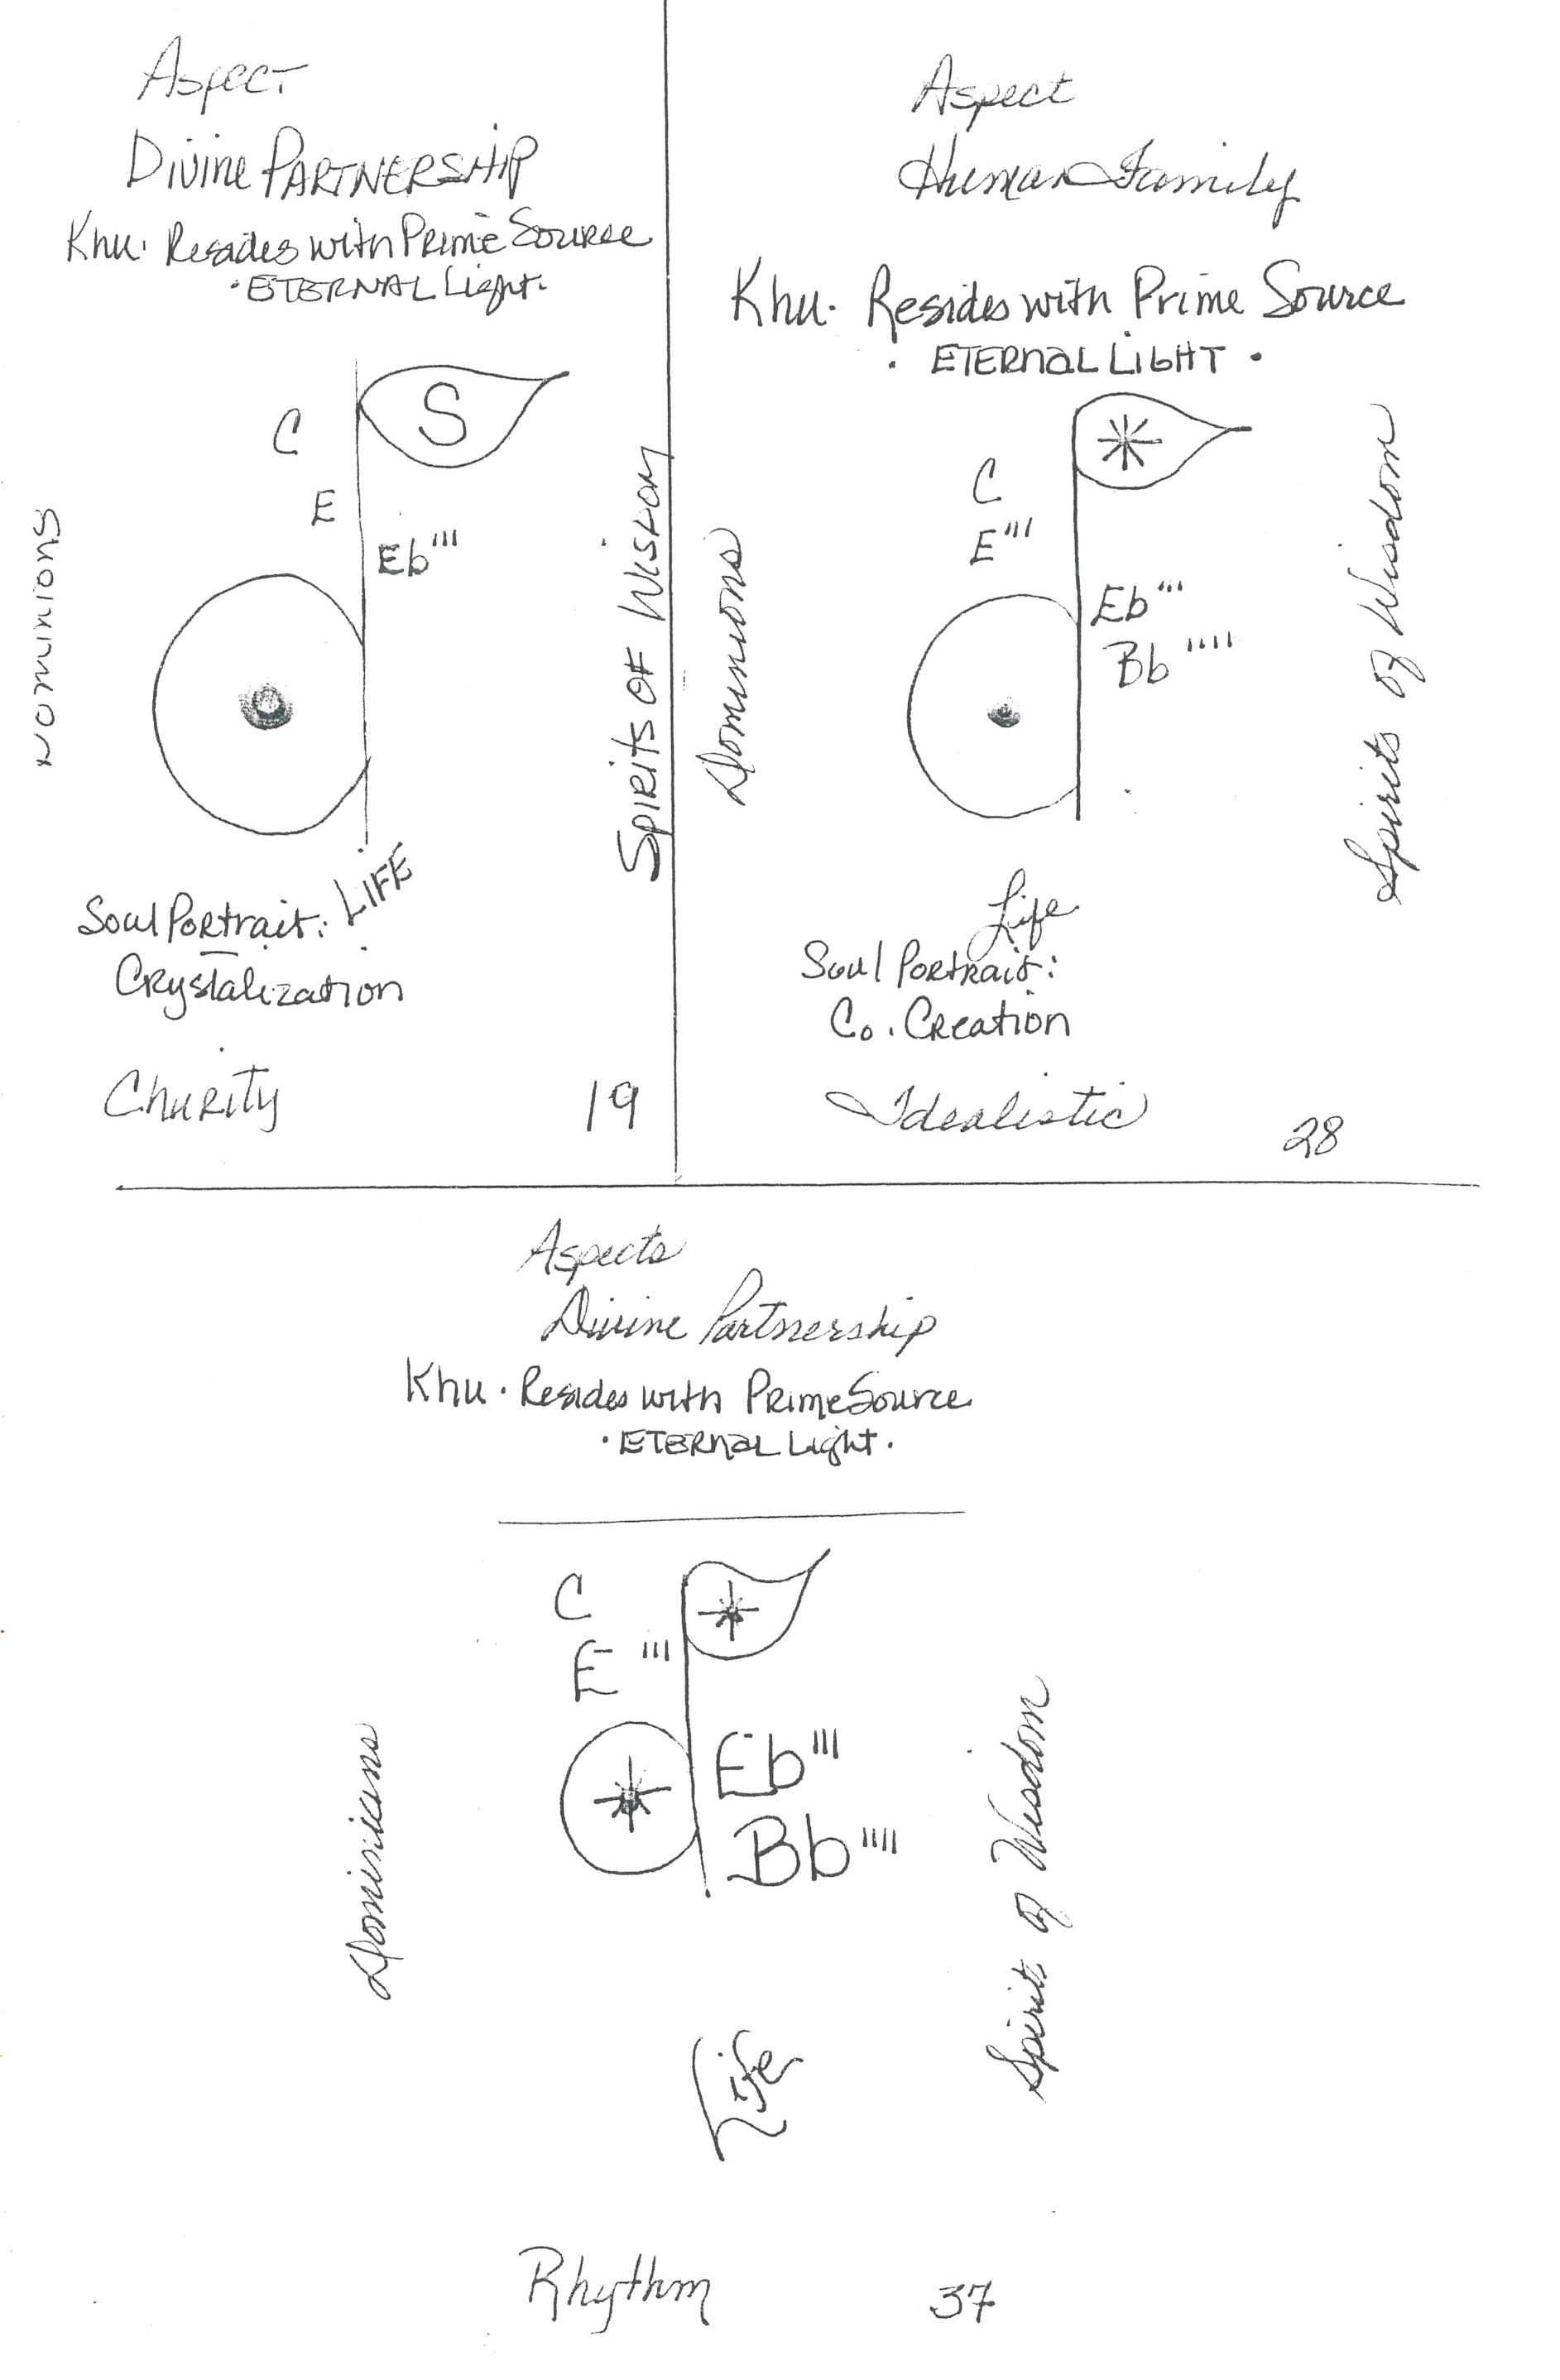 Aspect
Divine PARTNERSHIP
Khu. Resides with Prime Source
· ETERNAL Light ·
C
S
E
Eb'''
Dominions
Spirits of Wisdom
LIFE
Soul Portrait:
Crystalization
Charity
19
Aspect
Human Family
Khu. Resides with Prime Source
· ETERNAL LIGHT ·
C
E'''
Eb'''
Bb''''
Dominions
Spirits of Wisdom
Life
Soul Portrait:
Co. Creation
Idealistic
28
Aspects
Divine Partnership
Khu. Resides with Prime Source
· ETERNAL Light ·
C
E'''
Eb'''
Bb''''
Spirit of Wisdom
Life
Rhythm
37